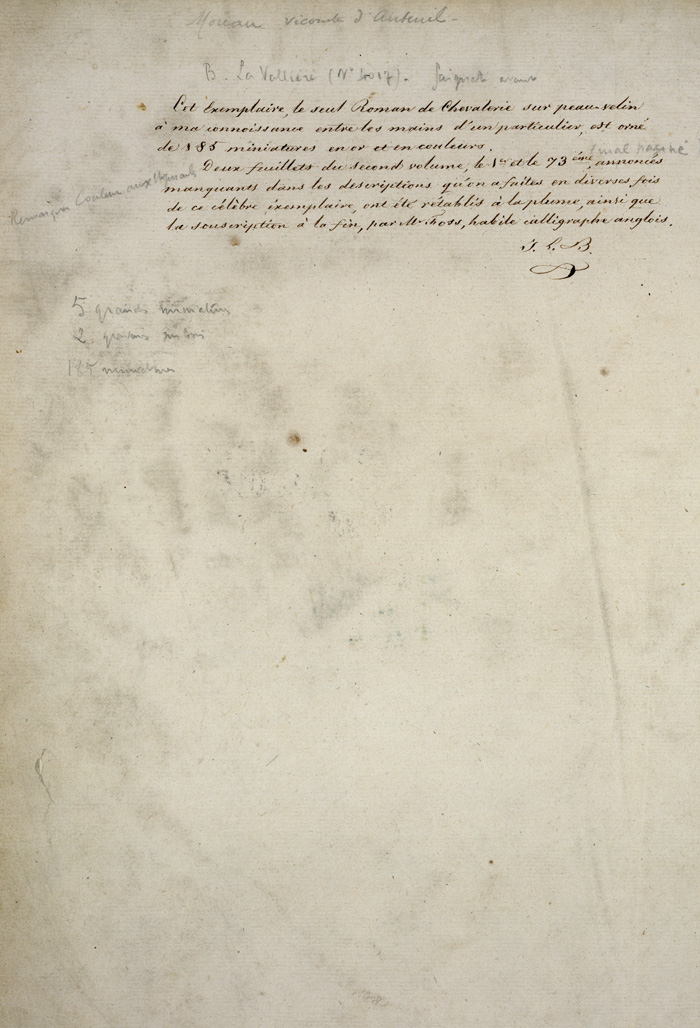 Moreau vicomte d'Auteuil -
B. La Vallière (N° 4017).
Cet Exemplaire, le seul Roman de Chevalerie sur peau-velin
à ma connoissance entre les mains d'un particulier, est orné
de 185 miniatures en or et en couleurs.
mal paginé
Deux feuillets du second volume, le 1er et le 73ème, annoncés
manquants dans les descriptions qu'on a faites en diverses fois
de ce célèbre exemplaire, ont été rétablis à la plume, ainsi que
la souscription à la fin, par Mr. Foss, habile calligraphe anglois.
J. L. B.
5 grandes miniatures
2. grandes
185 miniatures